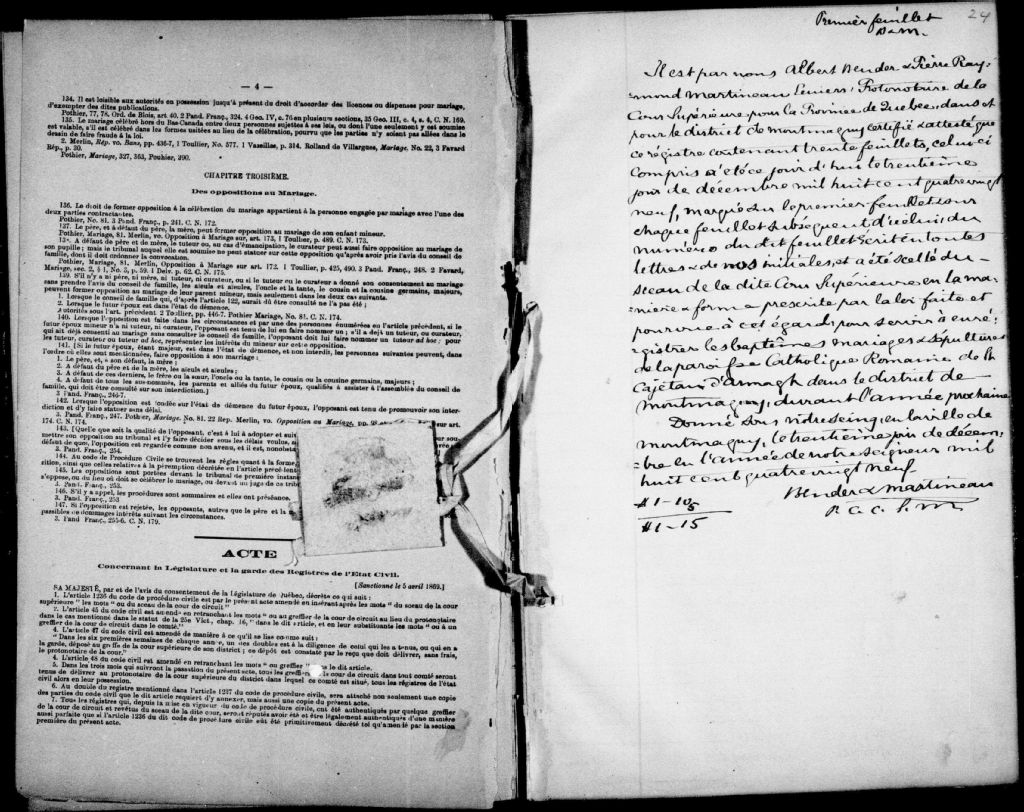 — 4 —
134. Il est loisible aux autorités en possession jusqu'à présent du droit d'accorder des licences ou dispenses pour mariage,
d'exempter des dites publications.
Pothier, 77, 78. Ord. de Blois, art. 40. 2 Pand. Franç., 324. 4 Geo. IV, c. 76 en plusieurs sections, 35 Geo. III, c. 4, s. 4, C. N. 169.
135. Le mariage célébré hors du Bas-Canada entre deux personnes sujettes à ses lois, ou dont l'une seulement y est soumise
est valable, s'il est célébré dans les formes usitées au lieu de la célébration, pourvu que les parties n'y soient pas allées dans le
dessein de faire fraude à la loi.
2. Merlin, Rép. vo. Bans, pp. 436-7, 1 Toullier, No. 577. 1 Vazeilles, p. 314. Rolland de Villargues, Mariage, No. 22, 3 Favard
Rép., p. 20.
Pothier, Mariage, 327, 363, Pouhier, 290.
CHAPITRE TROISIÈME.
Des oppositions au Mariage.
136. Le droit de former opposition à la célébration du mariage appartient à la personne engagée par mariage avec l'une des
deux parties contractantes.
Pothier, No. 81. 3 Pand. Franç., p. 241. C. N. 172.
137. Le père, et à défaut du père, la mère, peut former opposition au mariage de son enfant mineur.
Pothier, Mariage, 81. Merlin, vo. Opposition à Mariage, sur art. 173, 1 Toullier, p. 489. C. N. 173.
138. A défaut de père et de mère, le tuteur ou, au cas d'émancipation, le curateur peut aussi faire opposition au mariage de
son pupille ; mais le tribunal auquel elle est soumise ne peut statuer sur cette opposition qu'après avoir pris l'avis du conseil de
famille, dont il doit ordonner la convocation.
Pothier, Mariage, 81. Merlin, Opposition à Mariage sur art. 172. 1 Toullier, p. 425, 490. 3 Pand. Franç., 248. 2 Favard,
Mariage, sec. 2, § 1, No. 5, p. 59. 1 Delv. p. 62. C. N. 175.
139. S'il n'y a ni père, ni mère, ni tuteur, ni curateur, ou si le tuteur ou le curateur a donné son consentement au mariage
sans prendre l'avis du conseil de famille, les aïeuls et aïeules, l'oncle et la tante, le cousin et la cousine germains, majeurs,
peuvent former opposition au mariage de leur parent mineur, mais seulement dans les deux cas suivants.
1. Lorsque le conseil de famille qui, d'après l'article 122, aurait dû être consulté ne l'a pas été ;
2. Lorsque le futur époux est dans l'état de démence.
Autorités sous l'art. précédent. 2 Toullier, pp. 446-7. Pothier Mariage, No. 81. C. N. 174.
140. Lorsque l'opposition est faite dans les circonstances et par une des personnes énumérées en l'article précédent, si le
futur époux mineur n'a ni tuteur, ni curateur, l'opposant est tenu de lui en faire nommer un ; s'il a déjà un tuteur, ou curateur,
qui ait déjà consenti au mariage sans consulter le conseil de famille, l'opposant doit lui faire nommer un tuteur ad hoc ; pour
les tuteur, curateur ou tuteur ad hoc, représenter les intérêts du mineur sur cette opposition.
141. [Si le futur époux, étant majeur, est dans l'état de démence, et non interdit, les personnes suivantes peuvent, dans
l'ordre où elles sont mentionnées, faire opposition à son mariage :
1. Le père, et, à son défaut, la mère ;
2. A défaut du père et de la mère, les aïeuls et aïeules ;
3. A défaut de ces derniers, le frère ou la sœur, l'oncle ou la tante, le cousin ou la cousine germains, majeurs ;
4. A défaut de tous les sus-nommés, les parents et alliés du futur époux, qualifiés à assister à l'assemblée du conseil de
famille, qui doit être consulté sur son interdiction.]
3 Pand. Franç., 246-7.
142. Lorsque l'opposition est fondée sur l'état de démence du futur époux, l'opposant est tenu de promouvoir son inter-
diction et d'y faire statuer sans délai.
3. Pand. Franç., 247. Pothier, Mariage. No. 81. 22 Rep. Merlin, vo. Opposition au Mariage, pp.
174. C. N. 174.
143. [Quelle que soit la qualité de l'opposant, c'est à lui à adopter et
mettre son opposition au tribunal et l'y faire décider sous les délais voulus,
défaut de quoi, l'opposition est regardée comme non avenu, et il est,
3. Pand. Franç., 254.
144. Au code de Procédure Civile se trouvent les règles quant à la forme,
sition, ainsi que celles relatives à la péremption décrétée en l'article
145. Les oppositions sont portées devant le tribunal de première
s'oppose, ou du lieu où doit se célébrer le mariage, ou devant un juge de ce
3. Pand. Franç., 253.
146. S'il y a appel, les procédures sont sommaires et elles ont préséance.
3. Pand. Franç., 253
147. Si l'opposition est rejetée, les opposants, autres que le père et la
passibles de dommages intérêts suivant les circonstances.
3. Pand. Franç., 255-6. C. N. 179.
ACTE
Concernant la Législature et la garde des Registres de l'Etat Civil.
[Sanctionné le 5 avril 1869.]
SA MAJESTÉ, par et de l'avis du consentement de la Législature de Québec, décrète ce qui suit :
1. L'article 1236 du code de procédure civile est par le présent acte amendé en insérant après les mots " du sceau de la cour
supérieure " les mots " ou du sceau de la cour de circuit "
2. L'article 45 du code civil est amendé en retranchant les mots " ou au greffier de la cour de circuit au lieu du protonotaire
dans le cas mentionné dans le statut de la 25e Vict., chap. 16, " dans le dit article, et en leur substituant les mots " ou à un
greffier de la cour de circuit dans le comté."
4. L'article 47 du code civil est amendé de manière à ce qu'il se lise comme suit :
" Dans les six premières semaines de chaque année, un des doubles est à la diligence de celui qui les a tenus, ou qui en a
la garde, déposé au greffe de la cour supérieure de son district ; ce dépôt est constaté par le reçu que doit délivrer, sans frais,
le protonotaire de la cour."
4. L'article 48 du code civil est amendé en retranchant les mots " ou greffier " dans le dit article.
5. Dans les trois mois qui suivront la passation du présent acte, tous les greffiers de la cour de circuit dans tout comté seront
tenus de délivrer au protonotaire de la cour supérieure du district dans lequel ce comté est situé, tous les registres de l'état
civil alors en leur possession.
6. Au double du registre mentionné dans l'article 1237 du code de procédure civile, sera attaché non seulement une copie
des parties du code civil que le dit article requiert d'y annexer, mais aussi une copie du présent acte.
7. Tous les registres qui, depuis la mise en vigueur du code de procédure civile, ont été authentiqués par quelque greffier
de la cour de circuit et revêtus du sceau de la dite cour, seront réputés avoir été et être légalement authentiqués d'une manière
aussi parfaite que si l'article 1236 du dit code de procédure civile eût été primitivement décrété tel qu'amendé par la section
première du présent acte.
24
Premier feuillet
B & M.
Il est par nous Albert Bender & Pierre Ray-
mond Martineau Ecuiers, Protonotaire de la
Cour Supérieure pour la Province de Quebec, dans et
pour le district de Montmagny certifié & attesté que
ce régistre contenant trente feuillets, celui ci
compris a été ce jour d'hui le trentieme
jour de décembre mil huit cent quatre vingt
neuf, marqué sur le premier feuillet & sur
chaque feuillet subséquent d'icelui, du
numéro du dit feuillet écrit en toutes
lettres & de nos initiales, et a été scellé du
sceau de la dite Cour Supérieure en la ma-
nière & forme prescrite par la loi faite et
pourvue à cet égard, pour servir à enré-
gistrer les baptêmes mariages & sépultures
de la paroisse Catholique Romaine de St
Cajetan d'Armagh dans le district de
Montmagny, durant l'année prochaine
Donné sous notre seing, en la ville de
Montmagny, le trentième jour de décem-
bre en l'année de notre seigneur mil
huit cent quatre vingt neuf
Bender & Martineau
P. C. S. M
# 1 - 10
# 1 - 15